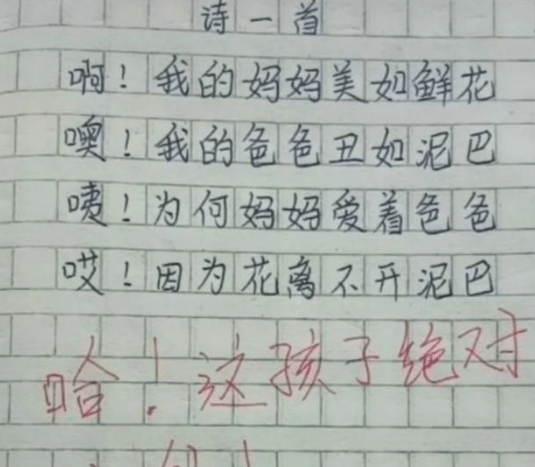 诗一首
啊！我的妈妈美如鲜花
噢！我的爸爸丑如泥巴
咦！为何妈妈爱着爸爸
哎！因为花离不开泥巴
哈！这孩子绝对